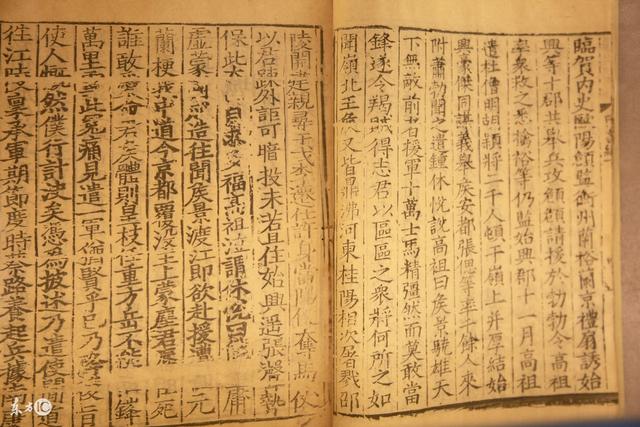 臨賀內史歐陽頠監衡州蘭裕蘭京禮扇誘始
興等十郡共舉兵攻頠頠請援於勃勃令高祖
率衆救之悉擒裕等仍監始興郡十一月高祖
遣杜僧明胡穎將二千人頓于嶺上并厚結始
興豪傑同謀義舉侯安都張偲等率千餘人來
附蕭勃聞之遣鍾休悅說高祖曰侯景驍雄天
下無敵前者援軍十萬士馬精彊然而莫敢當
鋒遂令羯賊得志君以區區之衆將何所之如
聞嶺北王侯又皆鼎沸河東桂陽相次屠戮邵
陵開建親尋干戈李遷仕許身當陽便奪馬仗
以君疎外詎可暗投未若且住始興遙張聲勢
保此太山自求多福高祖泣謂休悅曰庸
虛蒙國成造往聞侯景渡江即欲赴援遭元
蘭梗我中道今京都覆沒主上蒙塵君辱臣死
誰敢愛命君侯體則皇枝任重方岳不能鋒
萬里雪此冤痛見遣一軍猶賢乎已乃降後旨
使人慨然僕行計決矣憑為披述乃遣使間道
往江陵稟承軍期節度時蔡路養起兵據南康